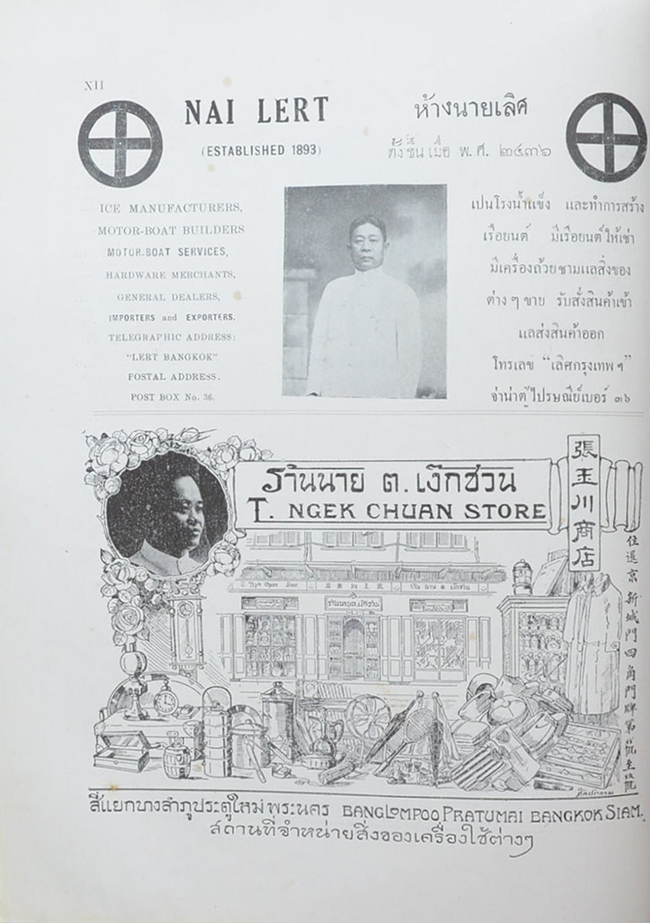 XII
NAI LERT
(ESTABLISHED 1893)
ICE MANUFACTURERS,
MOTOR-BOAT BUILDERS
MOTOR-BOAT SERVICES,
HARDWARE MERCHANTS,
GENERAL DEALERS,
IMPORTERS and EXPORTERS.
TELEGRAPHIC ADDRESS:
"LERT BANGKOK"
POSTAL ADDRESS.
POST BOX No. 36.
ห้างนายเลิศ
ตั้งขึ้นเมื่อ พ. ศ. ๒๔๓๖
เปนโรงน้ำแข็ง และทำการสร้าง
เรือยนต์ มีเรือยนต์ให้เช่า
มีเครื่องถ้วยชามแลสิ่งของ
ต่าง ๆ ขาย รับสั่งสินค้าเข้า
แลส่งสินค้าออก
โทรเลข "เลิศกรุงเทพฯ"
จ่าน่าตู้ไปรษณีย์เบอร์ ๓๖
ร้านนาย ต. เง๊กชวน
T. NGEK CHUAN STORE
張玉川商店
住暹京新城門四角門牌第
สี่แยกบางลำภูประตูใหม่พระนคร BANGLOMPOO, PRATUMAI BANGKOK SIAM.
สถานที่จำหน่ายสิ่งของเครื่องใช้ต่างๆ